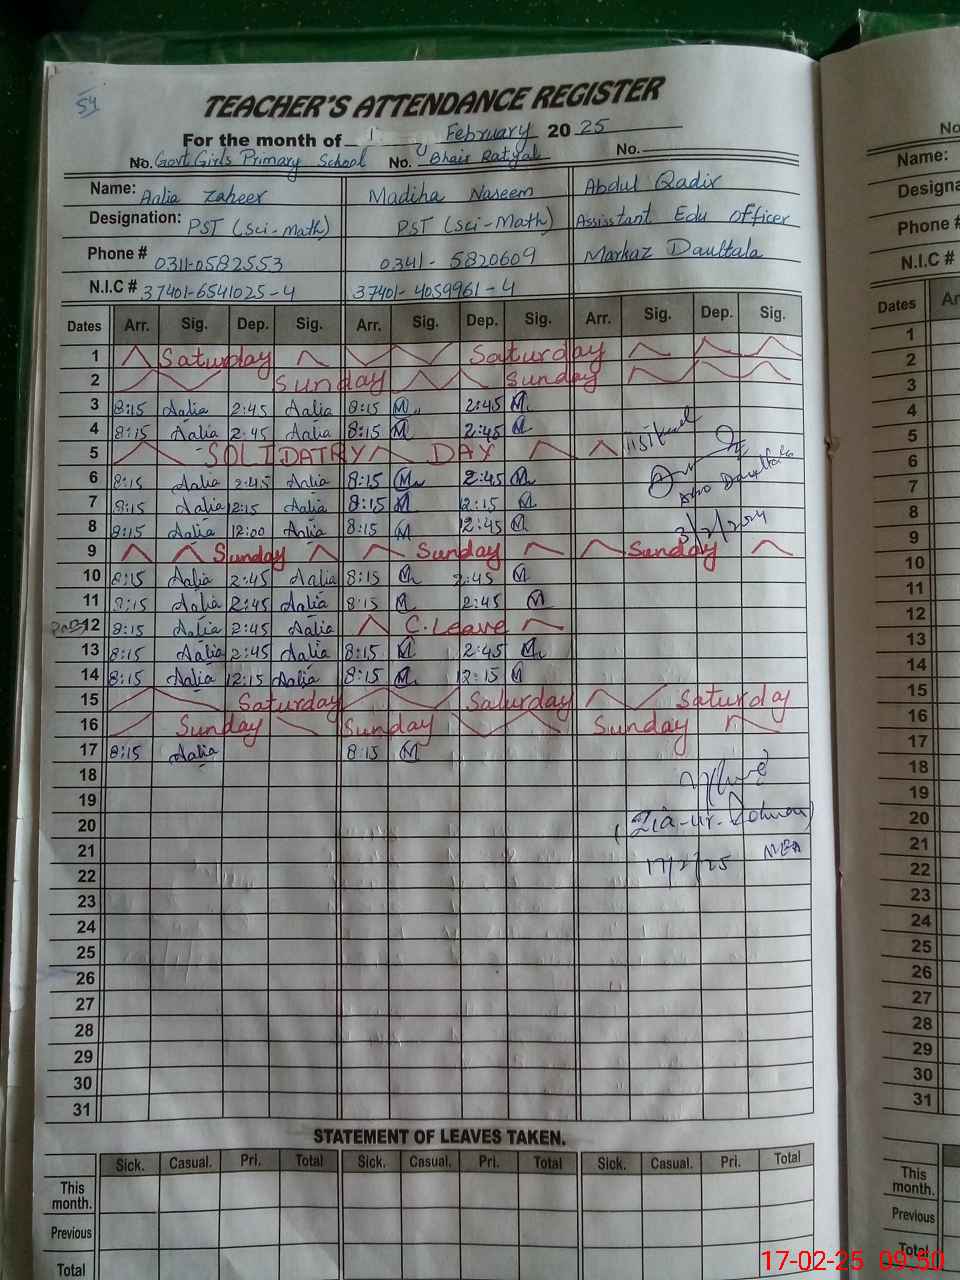 54
TEACHER'S ATTENDANCE REGISTER
For the month of February 2025
No. Govt Girls Primary School No. Bhair Ratyal No.
Name: Aalia Zaheer Madiha Naseem Abdul Qadir
Designation: PST (Sci-Math) PST (Sci-Math) Assisstant Edu officer
Phone # 0311-0582553 0341-5820609 Markaz Daultala
N.I.C # 37401-6541025-4 37401-4059961-4
Dates Arr. Sig. Dep. Sig. Arr. Sig. Dep. Sig. Arr. Sig. Dep. Sig.
1 Saturday Saturday
2 Sunday Sunday
3 8:15 Aalia 2:45 Aalia 8:15 M 2:45 M
4 8:15 Aalia 2:45 Aalia 8:15 M 2:45 M
5 SOLIDATRY DAY
6 8:15 Aalia 2:45 Aalia 8:15 M 2:45 M
7 8:15 Aalia 12:15 Aalia 8:15 M 12:15 M
8 8:15 Aalia 12:00 Aalia 8:15 M 12:45 M
3/2/2024
9 Sunday Sunday Sunday
10 8:15 Aalia 2:45 Aalia 8:15 M 2:45 M
11 8:15 Aalia 2:45 Aalia 8:15 M 2:45 M
12 8:15 Aalia 2:45 Aalia C.Leave
13 8:15 Aalia 2:45 Aalia 8:15 M 2:45 M
14 8:15 Aalia 12:15 Aalia 8:15 M 12:15 M
15 Saturday Saturday Saturday
16 Sunday Sunday Sunday
17 8:15 Aalia 8:15 M
18
19
20 (Zia-ur-Rehman)
21 MEA
22 17/2/25
23
24
25
26
27
28
29
30
31
STATEMENT OF LEAVES TAKEN.
Sick. Casual. Pri. Total Sick. Casual. Pri. Total Sick. Casual. Pri. Total
This month.
Previous
Total
No
Name:
Designa
Phone #
N.I.C #
Dates Ar
1
2
3
4
5
6
7
8
9
10
11
12
13
14
15
16
17
18
19
20
21
22
23
24
25
26
27
28
29
30
31
This month.
Previous
Total
17-02-25 09:50